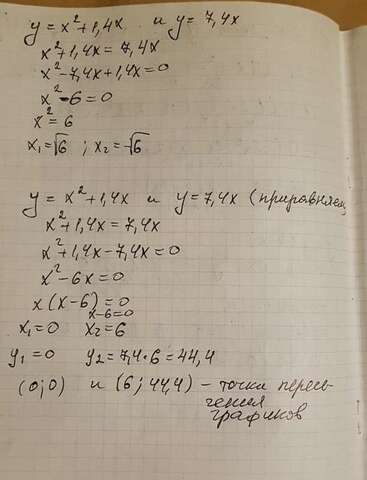 y = x² + 1,4x и y = 7,4x
x² + 1,4x = 7,4x
x² - 7,4x + 1,4x = 0
x² - 6 = 0
x² = 6
x₁ = √6 ; x₂ = -√6
y = x² + 1,4x и y = 7,4x (приравняем)
x² + 1,4x = 7,4x
x² + 1,4x - 7,4x = 0
x² - 6x = 0
x (x - 6) = 0
x - 6 = 0
x₁ = 0 x₂ = 6
y₁ = 0 y₂ = 7,4 • 6 = 44,4
(0; 0) и (6; 44,4) – точки пересе-
чения
графиков